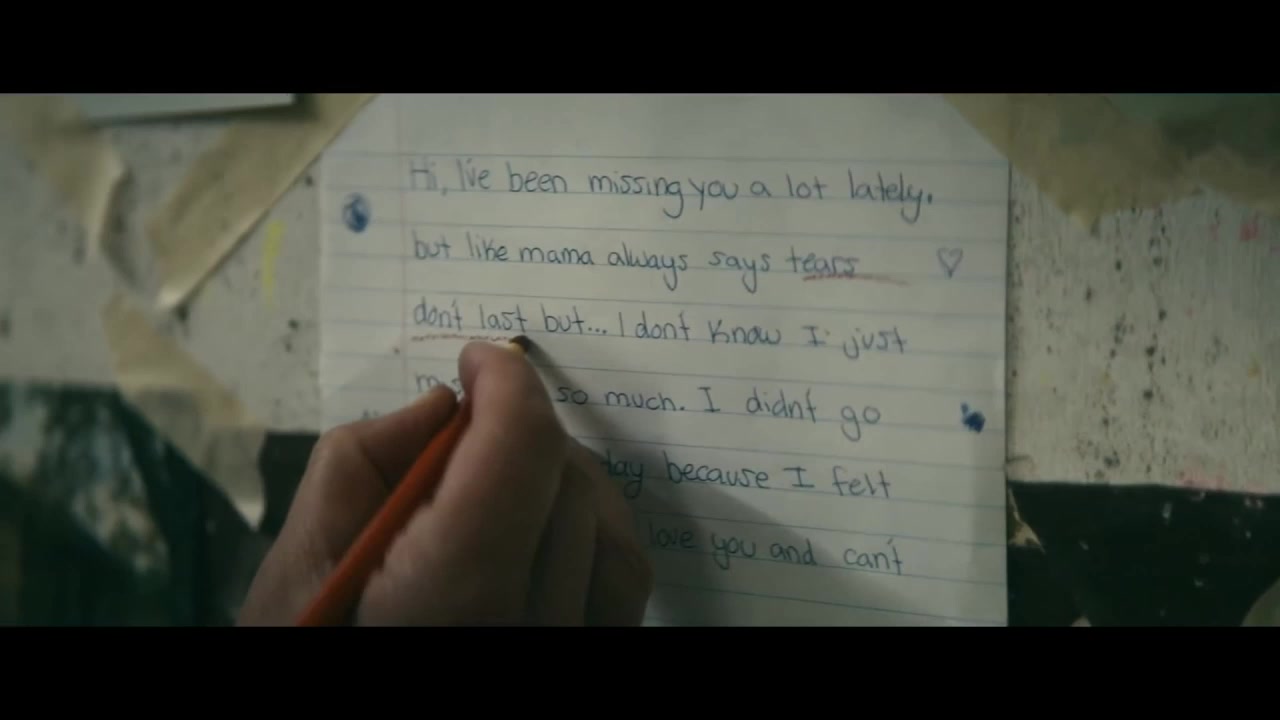 Hi, I've been missing you a lot lately.
but like mama always says tears
don't last but... I dont know I just
so much. I didnt go
because I felt
love you and can't